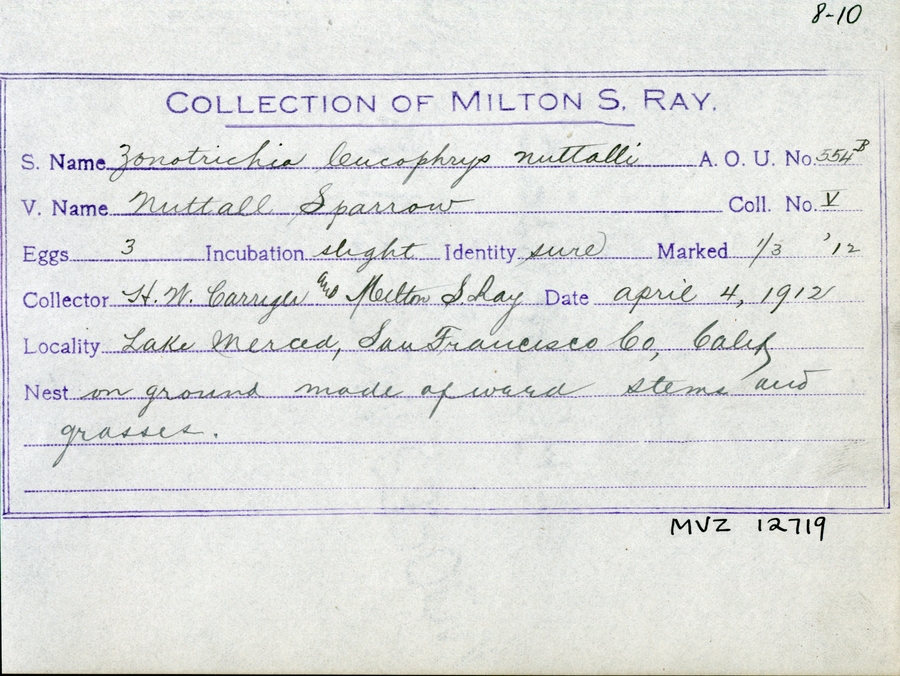 8-10
COLLECTION OF MILTON S. RAY.
S. Name Zonotrichia leucophrys nuttalli A. O. U. No. 554B
V. Name Nuttall Sparrow Coll. No. V
Eggs 3 Incubation slight Identity sure Marked 1/3 '12
Collector H. W. Carriger and Milton S. Ray Date April 4, 1912
Locality Lake Merced, San Francisco Co, Calif
Nest on ground made of stems and
grasses.
MVZ 12719